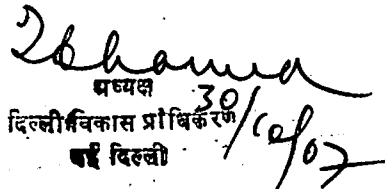 अध्यक्ष
दिल्ली विकास प्राधिकरण
नई दिल्ली
30/10/07